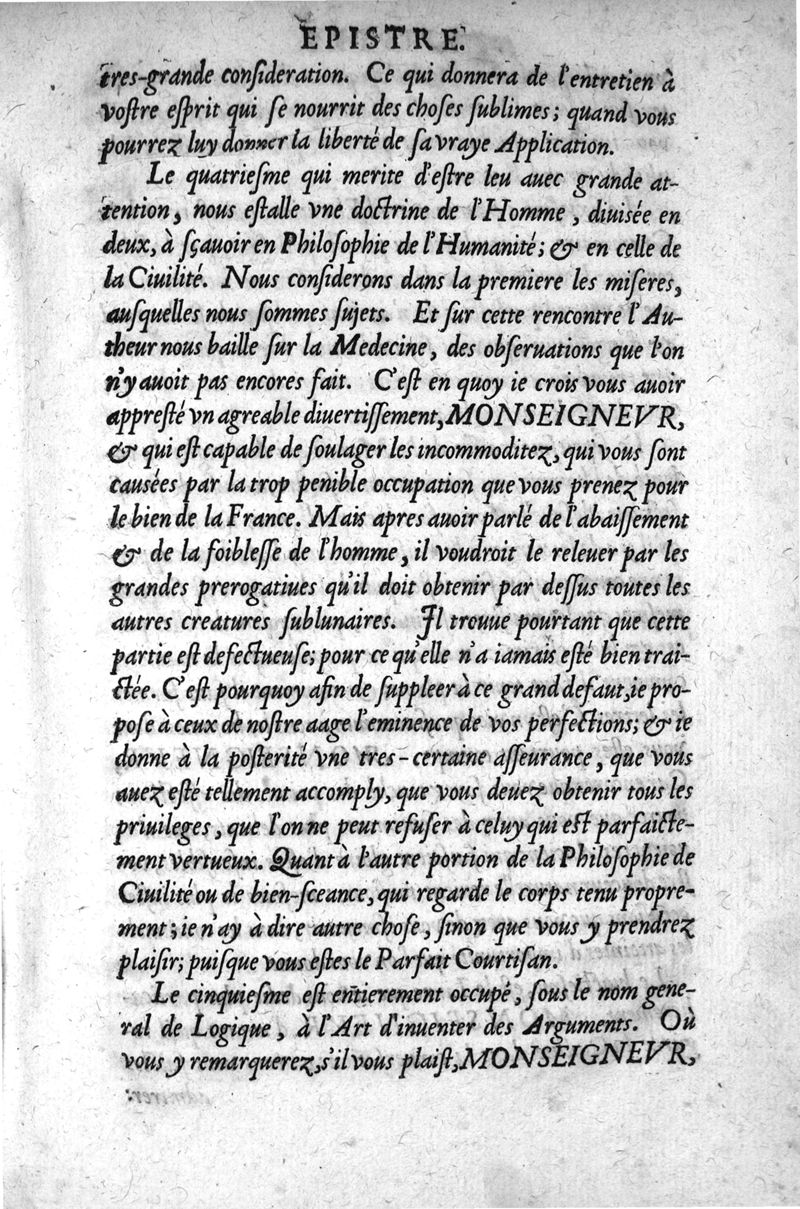 EPISTRE.
tres-grande conſideration. Ce qui donnera de l'entretien à
voſtre eſprit qui ſe nourrit des choſes ſublimes; quand vous
pourrez luy donner la liberté de ſa vraye Application.
Le quatrieſme qui merite d'eſtre leu auec grande at-
tention, nous eſtalle vne doctrine de l'Homme, diuisée en
deux, à ſçauoir en Philoſophie de l'Humanité; & en celle de
la Ciuilité. Nous conſiderons dans la premiere les miſeres,
auſquelles nous ſommes ſujets. Et ſur cette rencontre l'Au-
theur nous baille ſur la Medecine, des obſeruations que l'on
n'y auoit pas encores fait. C'eſt en quoy ie crois vous auoir
appreſté vn agreable diuertiſſement, MONSEIGNEVR,
& qui eſt capable de ſoulager les incommoditez, qui vous ſont
cauſées par la trop penible occupation que vous prenez pour
le bien de la France. Mais apres auoir parlé de l'abaiſſement
& de la foibleſſe de l'homme, il voudroit le releuer par les
grandes prerogatiues qu'il doit obtenir par deſſus toutes les
autres creatures ſublunaires. Il trouue pourtant que cette
partie eſt defectueuſe; pour ce qu'elle n'a iamais eſté bien trai-
ctée. C'eſt pourquoy afin de ſuppleer à ce grand defaut, ie pro-
poſe à ceux de noſtre aage l'eminence de vos perfections; & ie
donne à la poſterité vne tres-certaine aſſeurance, que vous
auez eſté tellement accomply, que vous deuez obtenir tous les
priuileges, que l'on ne peut refuſer à celuy qui eſt parfaicte-
ment vertueux. Quant à l'autre portion de la Philoſophie de
Ciuilité ou de bien-ſceance, qui regarde le corps tenu propre-
ment; ie n'ay à dire autre choſe, ſinon que vous y prendrez
plaiſir; puiſque vous eſtes le Parfait Courtiſan.
Le cinquieſme eſt entierement occupé, ſous le nom gene-
ral de Logique, à l'Art d'inuenter des Arguments. Où
vous y remarquerez, s'il vous plaiſt, MONSEIGNEVR,